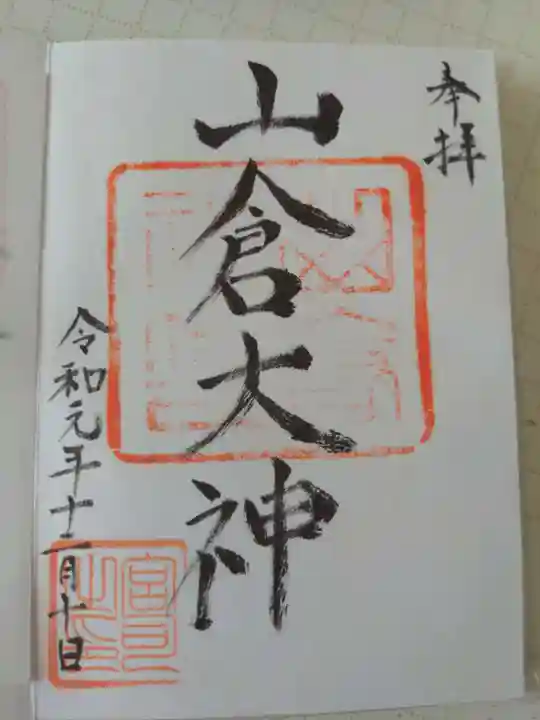 奉拝
山倉大神
令和元年十二月十日